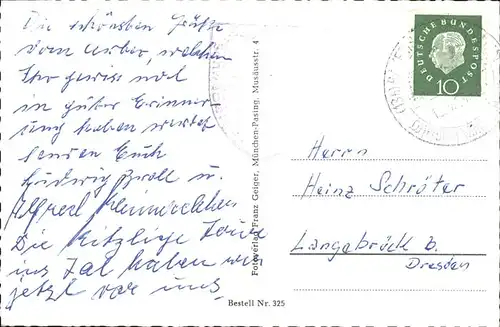 Die schönsten Grüße
vom Arber, welchen
Ihr gewiss noch
in guter Erinner-
ung haben werdet
senden Euch
Ludwig u.
Alfred
Die kitzlige Tour
ins Tal haben wir
jetzt vor uns
Fotoverlag Franz Geiger, München-Pasing, Musäusstr. 4
Bestell Nr. 325
DEUTSCHE BUNDESPOST
10
Herrn
Heinz Schröter
Langebrück b.
Dresden